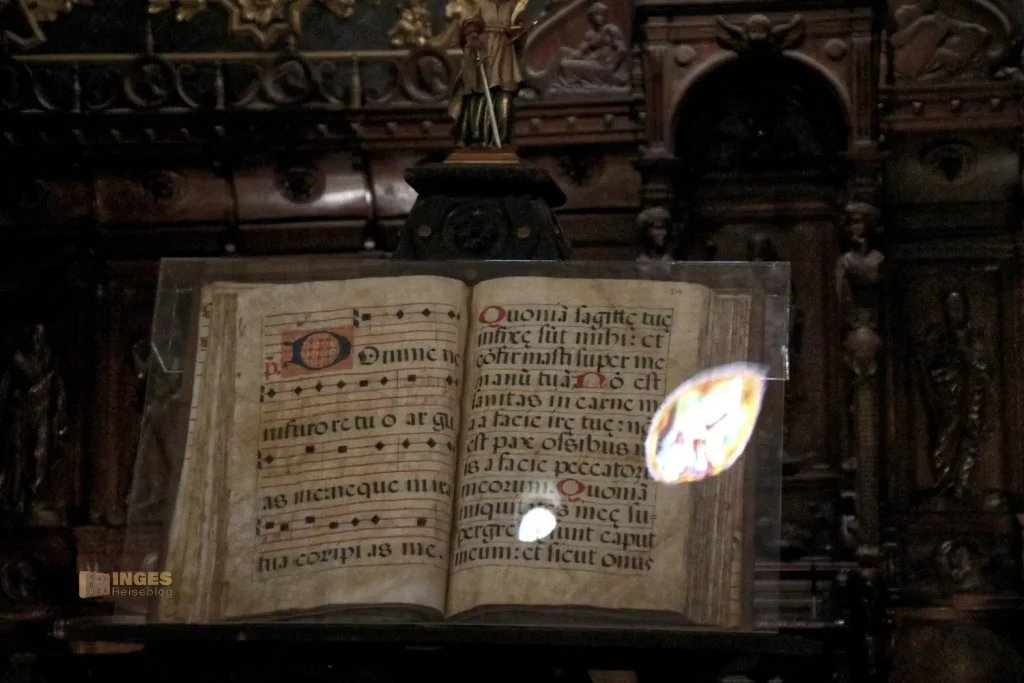 Domine ne
in furore tu o ar gu
as me: neque in ira
tua corripi as me.
Quoniã sagittę tuę
infixę sũt mihi: et
cõfirmasti super me
manũ tuã. Nõ est
sanitas in carne m
a a facie irę tuę: nõ
est pax ossibus m
is a facie peccatorũ
meorum. Quoniã
iniquitates meę su=
pergressę sunt caput
meum: et sicut onus
INGES
Reiseblog